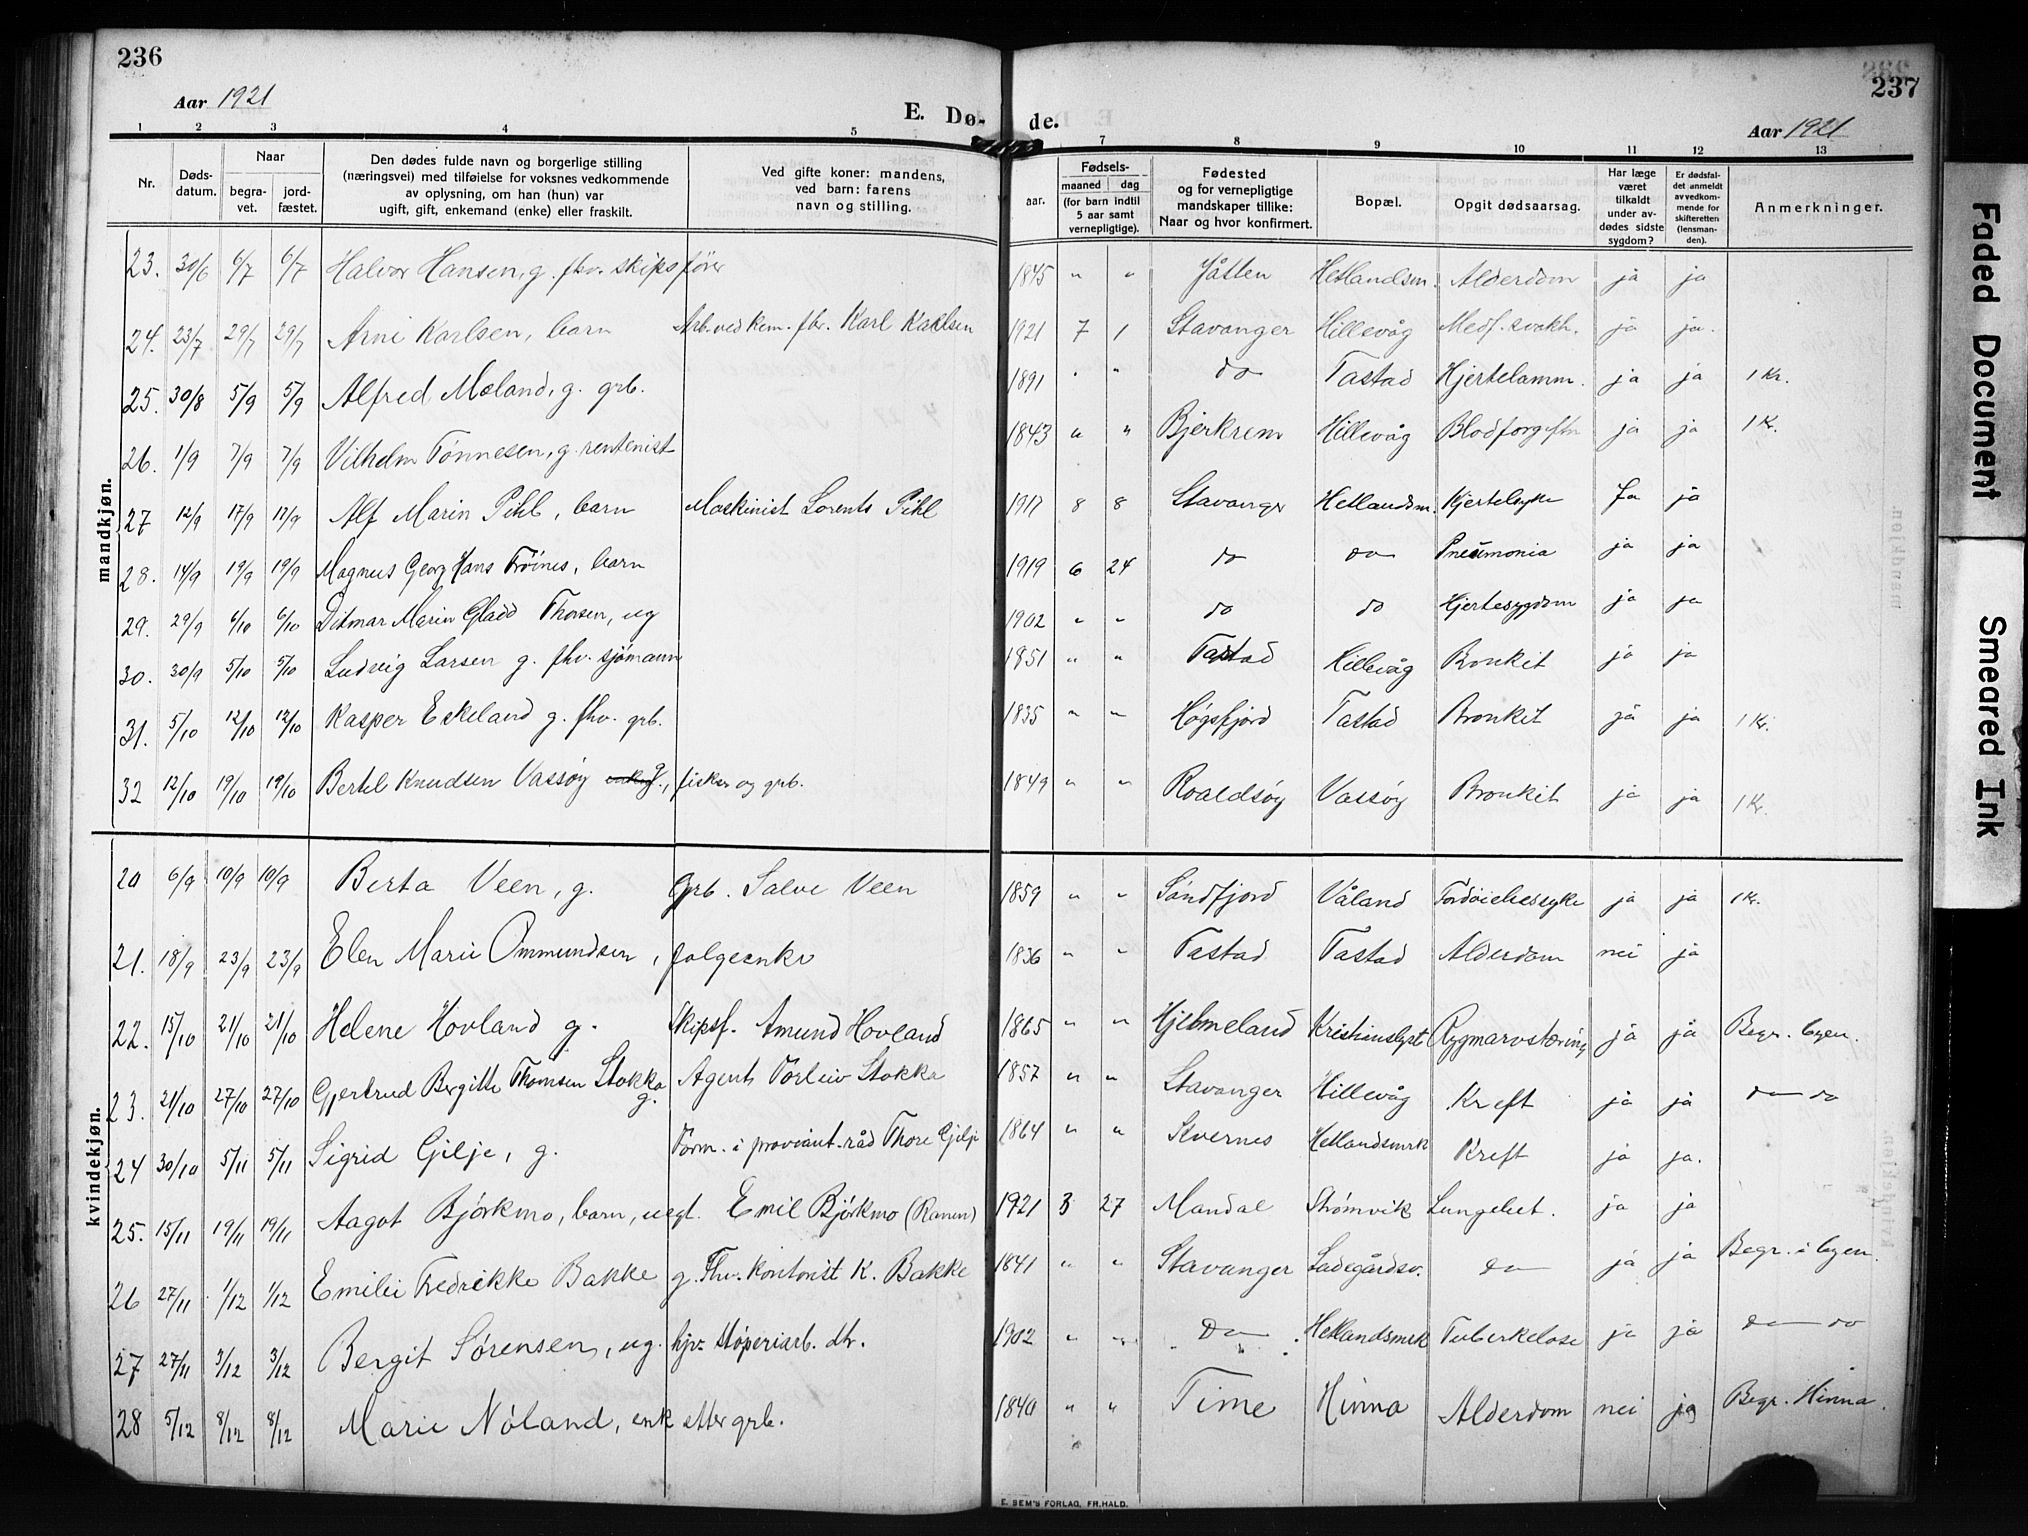 236
Aar 1921
E. Dø- de.
237
Aar 1921
1 2 3 4 5 7 8 9 10 11 12 13
Nr. Døds-datum. Naar begra-vet. jord-fæstet. Den dødes fulde navn og borgerlige stilling (næringsvei) med tilføielse for voksnes vedkommende av oplysning, om han (hun) var ugift, gift, enkemand (enke) eller fraskilt. Ved gifte koner: mandens, ved barn: farens navn og stilling. Fødsels- aar. maaned dag (for barn indtil 5 aar samt vernepligtige). Fødested og for vernepligtige mandskaper tillike: Naar og hvor konfirmert. Bopæl. Opgit dødsaarsag. Har læge været tilkaldt under av-dødes sidste sygdom? Er dødsfal-det anmeldt av vedkom-mende for skifteretten (lensman-den). Anmerkninger.
mandkjøn.
23. 30/6 6/7 6/7 Halvor Hansen, g. fhv. skipsfører 1845 " " Jåtten Hetlandsm. Alderdom ja ja
24. 23/7 29/7 29/7 Arne Karlsen, barn Arb. ved kem. fbr. Karl Karlsen 1921 7 1 Stavanger Hillevåg Medf. svakh. ja ja.
25. 30/8 5/9 5/9 Alfred Moland, g. grb. 1891 " " do Tastad Hjertelamm. ja ja 1 Kr.
26. 1/9 7/9 7/9 Vilhelm Tønnesen, g. rentenist 1843 " " Bjerkrem Hillevåg Blodforgiftn ja ja 1 Kr.
27 12/9 17/9 17/9 Alf Marin Pihl, barn Maskinist Lorents Pihl 1917 8 8 Stavanger Hetlandsm. Kjertelsyke Ja ja
28. 14/9 19/9 19/9 Magnus Georg Hans Trøines, barn 1919 6 24 do do Pneumonia ja ja
29. 29/9 6/10 6/10 Ditmar Marin Gladd Thorsen, ug 1902 " " do do Hjertesygdom ja ja
30. 30/9 5/10 5/10 Ludvig Larsen g. fhv. sjømann 1851 " " Tastad Hillevåg Bronkit ja ja
31. 5/10 12/10 12/10 Kasper Eskeland g. fhv. grb. 1835 " " Høgsfjord Tastad Bronkit ja ja 1 Kr.
32 12/10 19/10 19/10 Bertel Knudsen Vassøy g., fisker og grb. 1849 " " Roaldsøy Vassøy Bronkit ja ja 1 Kr.
kvindekjøn.
20 6/9 10/9 10/9 Berta Veen, g. grb. Salve Veen 1859 " " Søndfjord Våland Fordøielsessyke ja ja 1 Kr.
21. 18/9 23/9 23/9 Elen Marie Ommundsen, folgeenke 1836 " " Tastad Tastad Alderdom nei ja
22. 15/10 21/10 21/10 Helene Hovland g. Skipsf. Amund Hovland 1865 " " Hjelmeland Kristianslyst Rygmarvstæring ja ja Begr. byen.
23. 21/10 27/10 27/10 Gjertrud Bergitte Thomsen Stokka g. Agent Torleiv Stokka 1857 " " Stavanger Hillevåg Kreft ja ja do do
24 30/10 5/11 5/11 Sigrid Gilje, g. Form. i proviant-råd Thore Gilje 1864 " " Kvernes Hetlandsmrk Kreft ja ja.
25. 15/11 19/11 19/11 Aagot Bjørkmo, barn, uegt. Emil Bjørkmo (Ranen) 1921 3 27 Mandal Strømvik Lungebet. ja ja
26 27/11 1/12 1/12 Emilie Fredrikke Bakke g. Fhv. kontorist K. Bakke 1841 " " Stavanger Ladegårdsv. do ja ja Begr. i byen.
27 27/11 3/12 3/12 Bergit Sørensen, ug. hjv. støperiarb. dtr. 1902 " " Do Hetlandsmrk Tuberkelose ja ja do do
28 5/12 8/12 8/12 Marie Nóland, enk etter grb. 1840 " " Time Hinna Alderdom nei ja Begr. Hinna.
E. SEM'S FORLAG, FR.HALD.
Faded Document
Smeared Ink